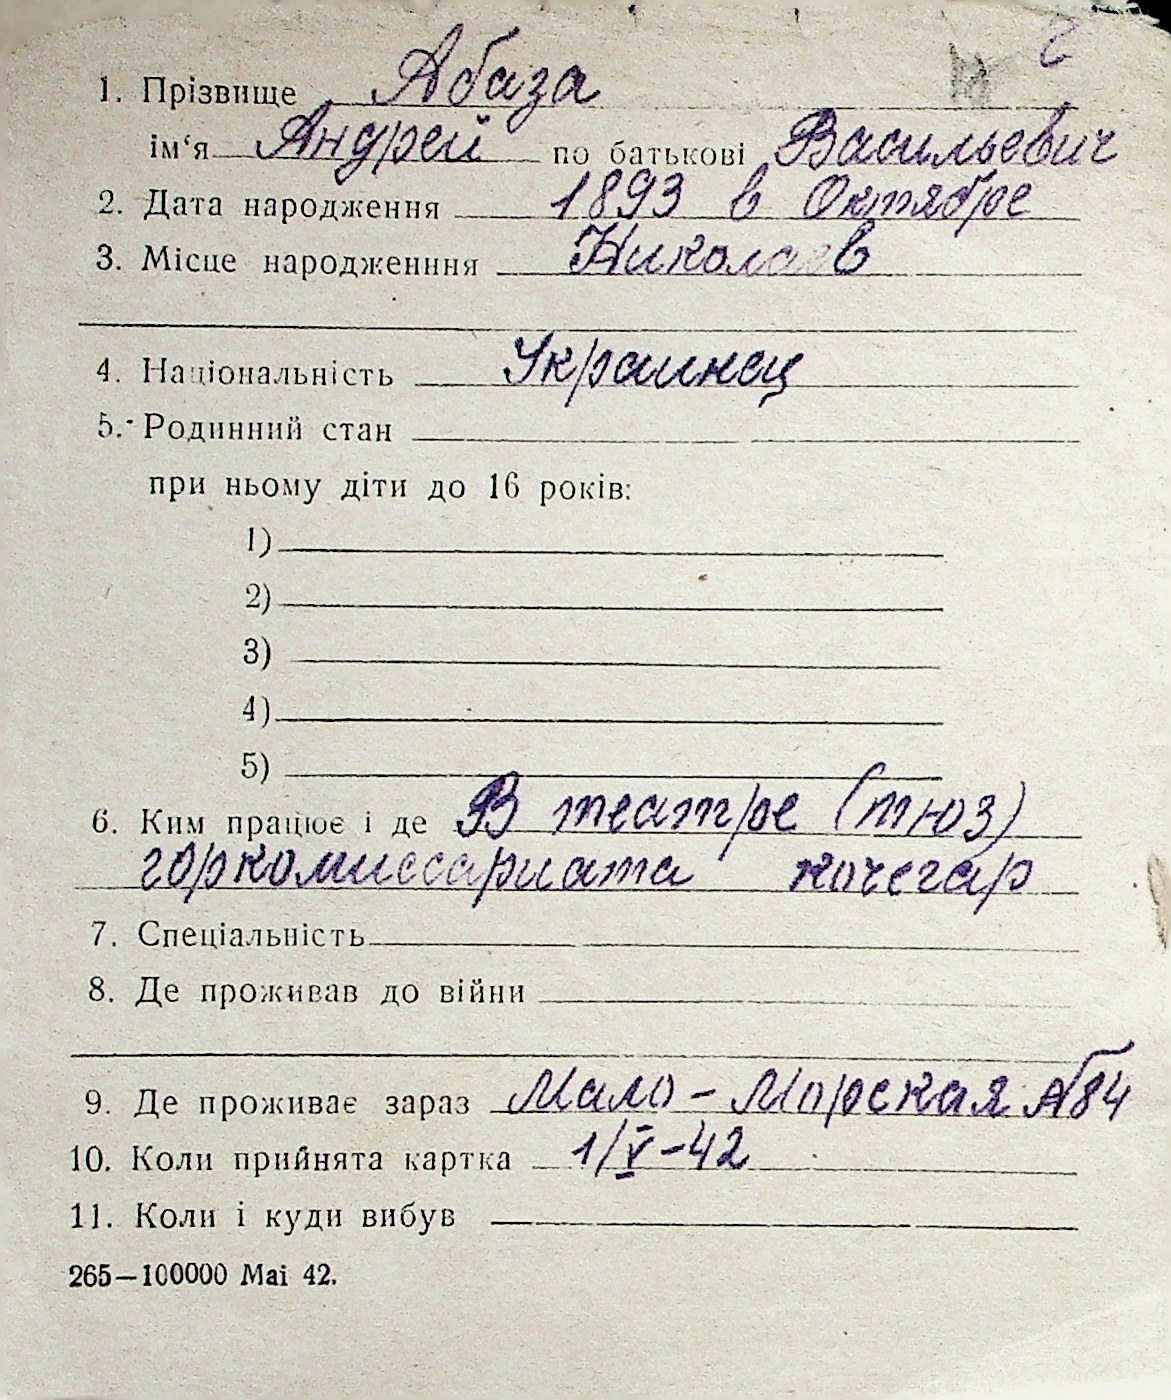 1. Прізвище Абаза
ім‘я Андрей по батькові Васильевич
2. Дата народження 1893 в Октябре
3. Місце народженння Николаев
4. Національність Украинец
5. Родинний стан
при ньому діти до 16 років:
1)
2)
3)
4)
5)
6. Ким працює і де В театре (тюз)
горкомиссариата кочегар
7. Спеціальність
8. Де проживав до війни
9. Де проживає зараз Мало-Морская №84
10. Коли прийнята картка 1/V-42
11. Коли і куди вибув
265—100000 Mai 42.